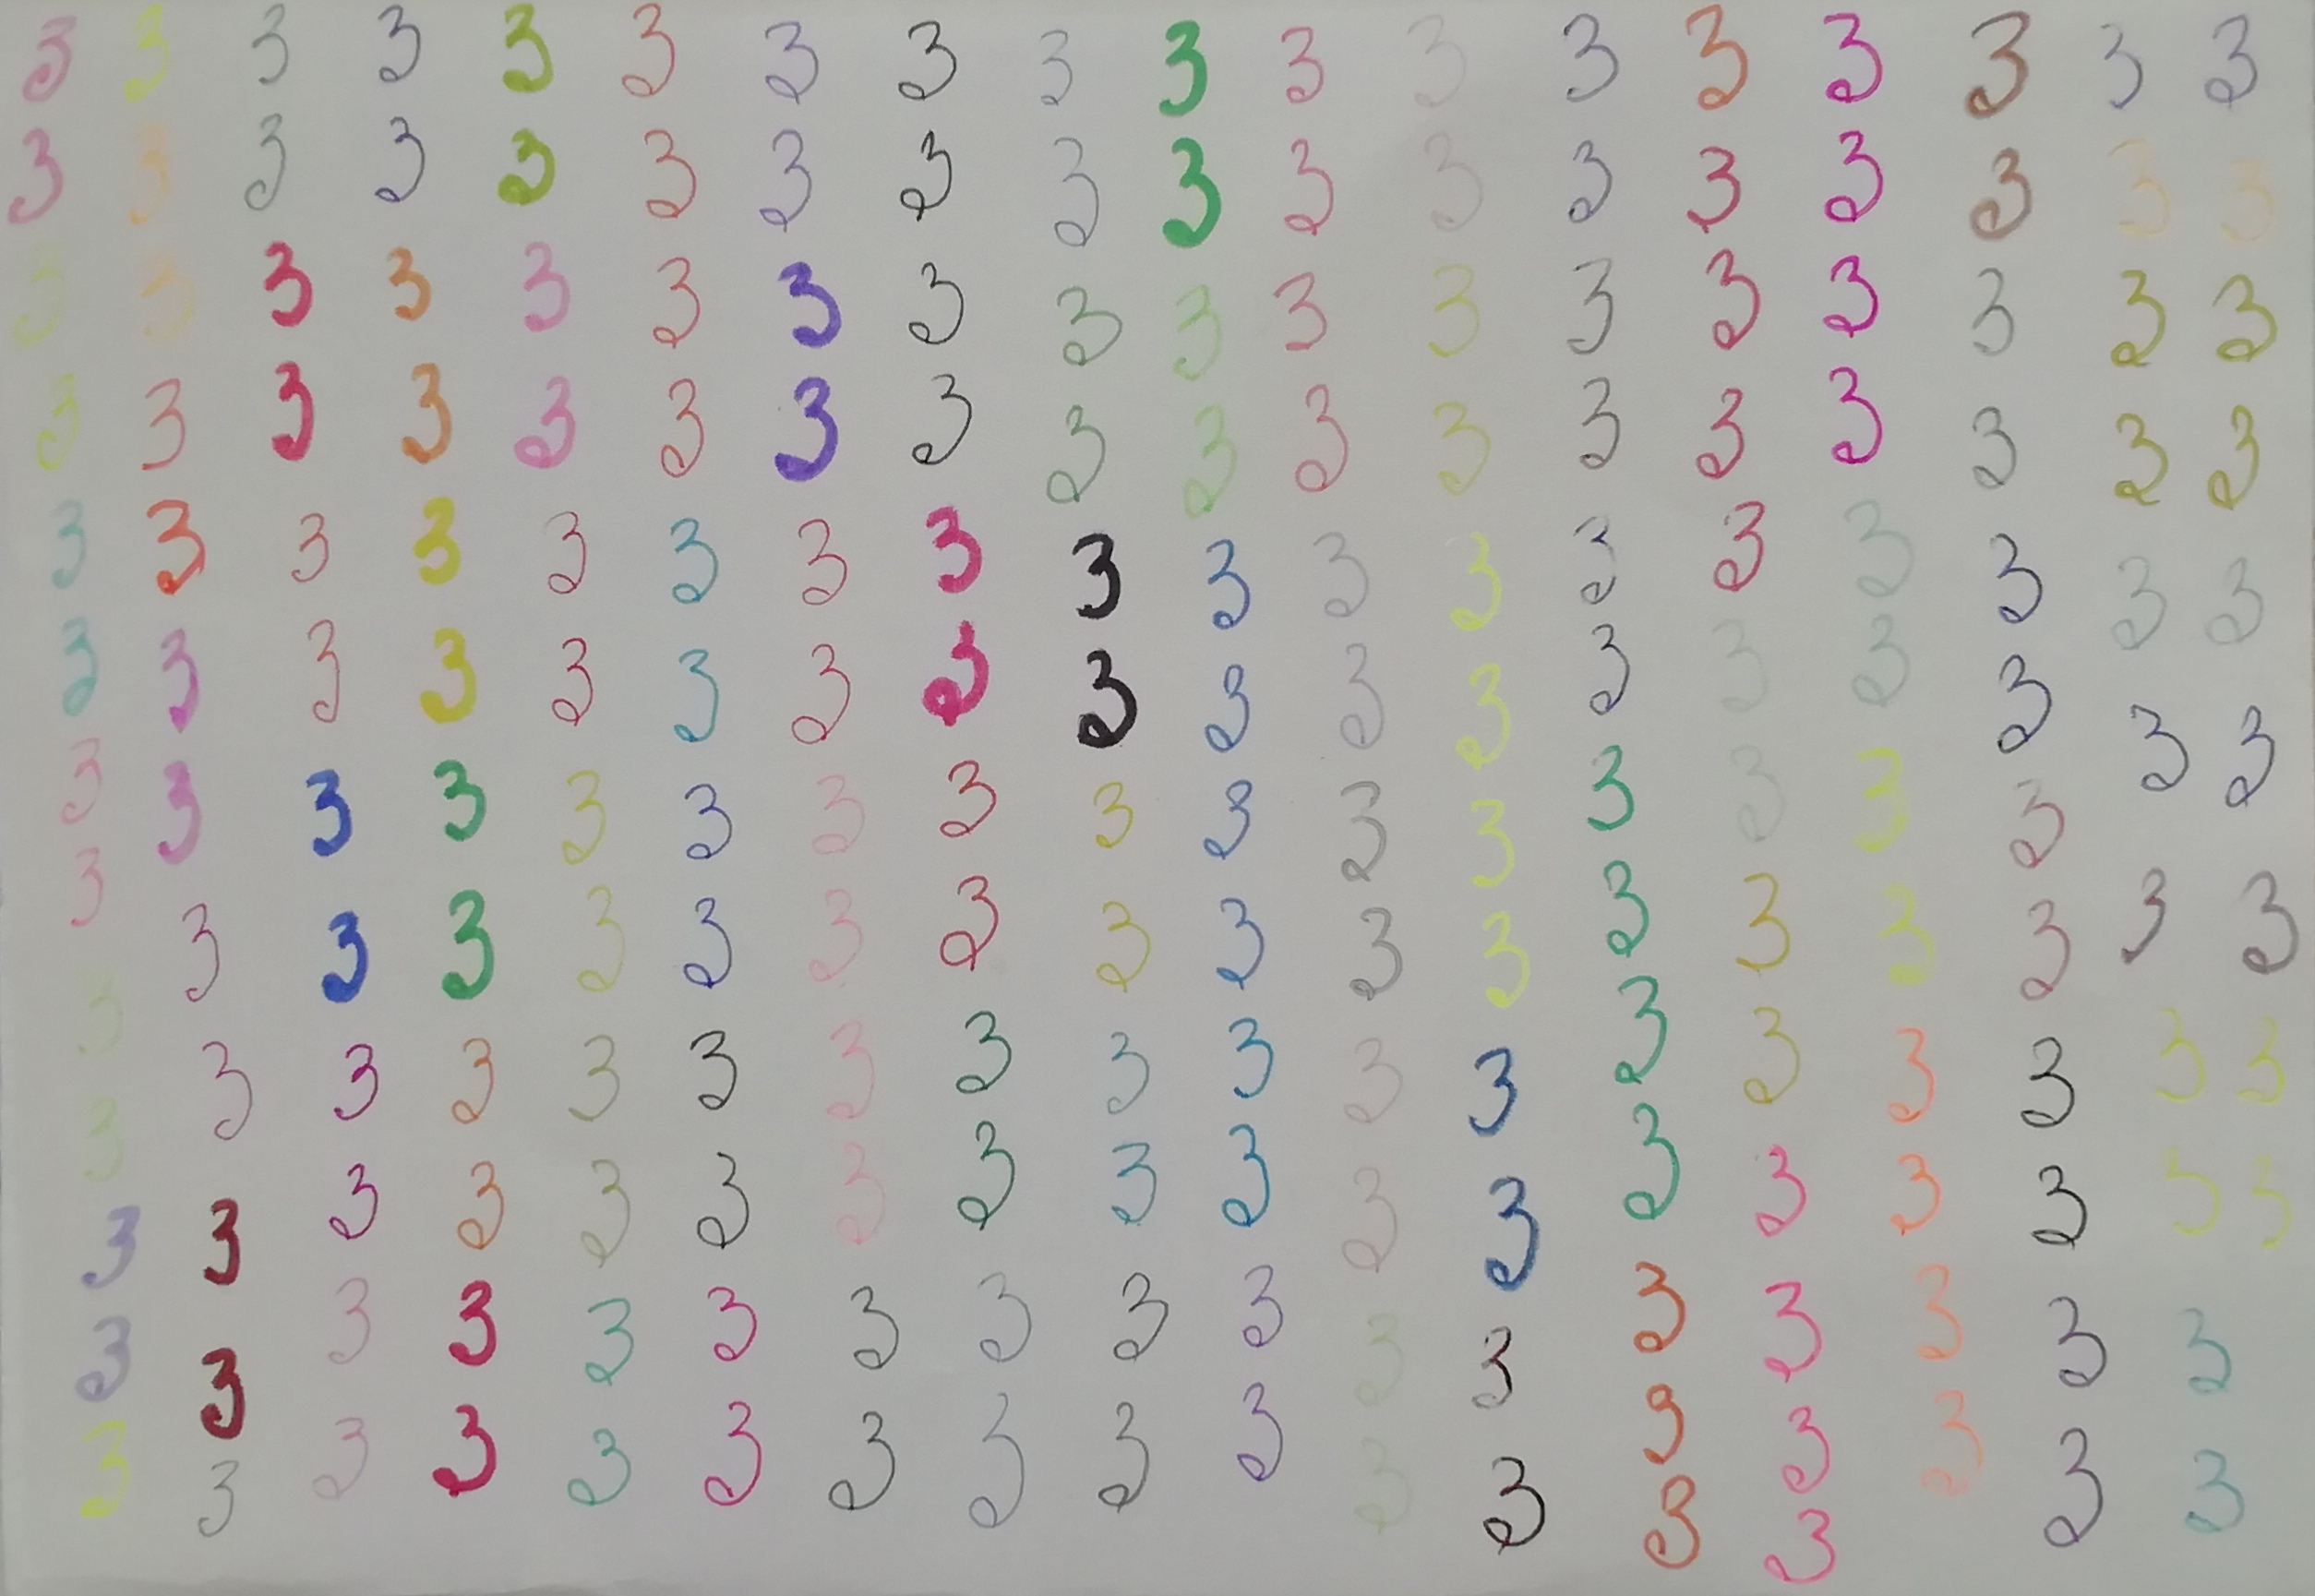 3 3 3 3 3 3 3 3 3 3 3 3 3 3 3 3 3 3
3 3 3 3 3 3 3 3 3 3 3 3 3 3 3 3 3 3
3 3 3 3 3 3 3 3 3 3 3 3 3 3 3 3 3 3
3 3 3 3 3 3 3 3 3 3 3 3 3 3 3 3 3 3
3 3 3 3 3 3 3 3 3 3 3 3 3 3 3 3 3 3
3 3 3 3 3 3 3 3 3 3 3 3 3 3 3 3 3 3
3 3 3 3 3 3 3 3 3 3 3 3 3 3 3 3 3 3
3 3 3 3 3 3 3 3 3 3 3 3 3 3 3 3 3 3
3 3 3 3 3 3 3 3 3 3 3 3 3 3 3 3 3 3
3 3 3 3 3 3 3 3 3 3 3 3 3 3 3 3 3
3 3 3 3 3 3 3 3 3 3 3 3 3 3 3 3 3
3 3 3 3 3 3 3 3 3 3 3 3 3 3 3 3
3 3 3